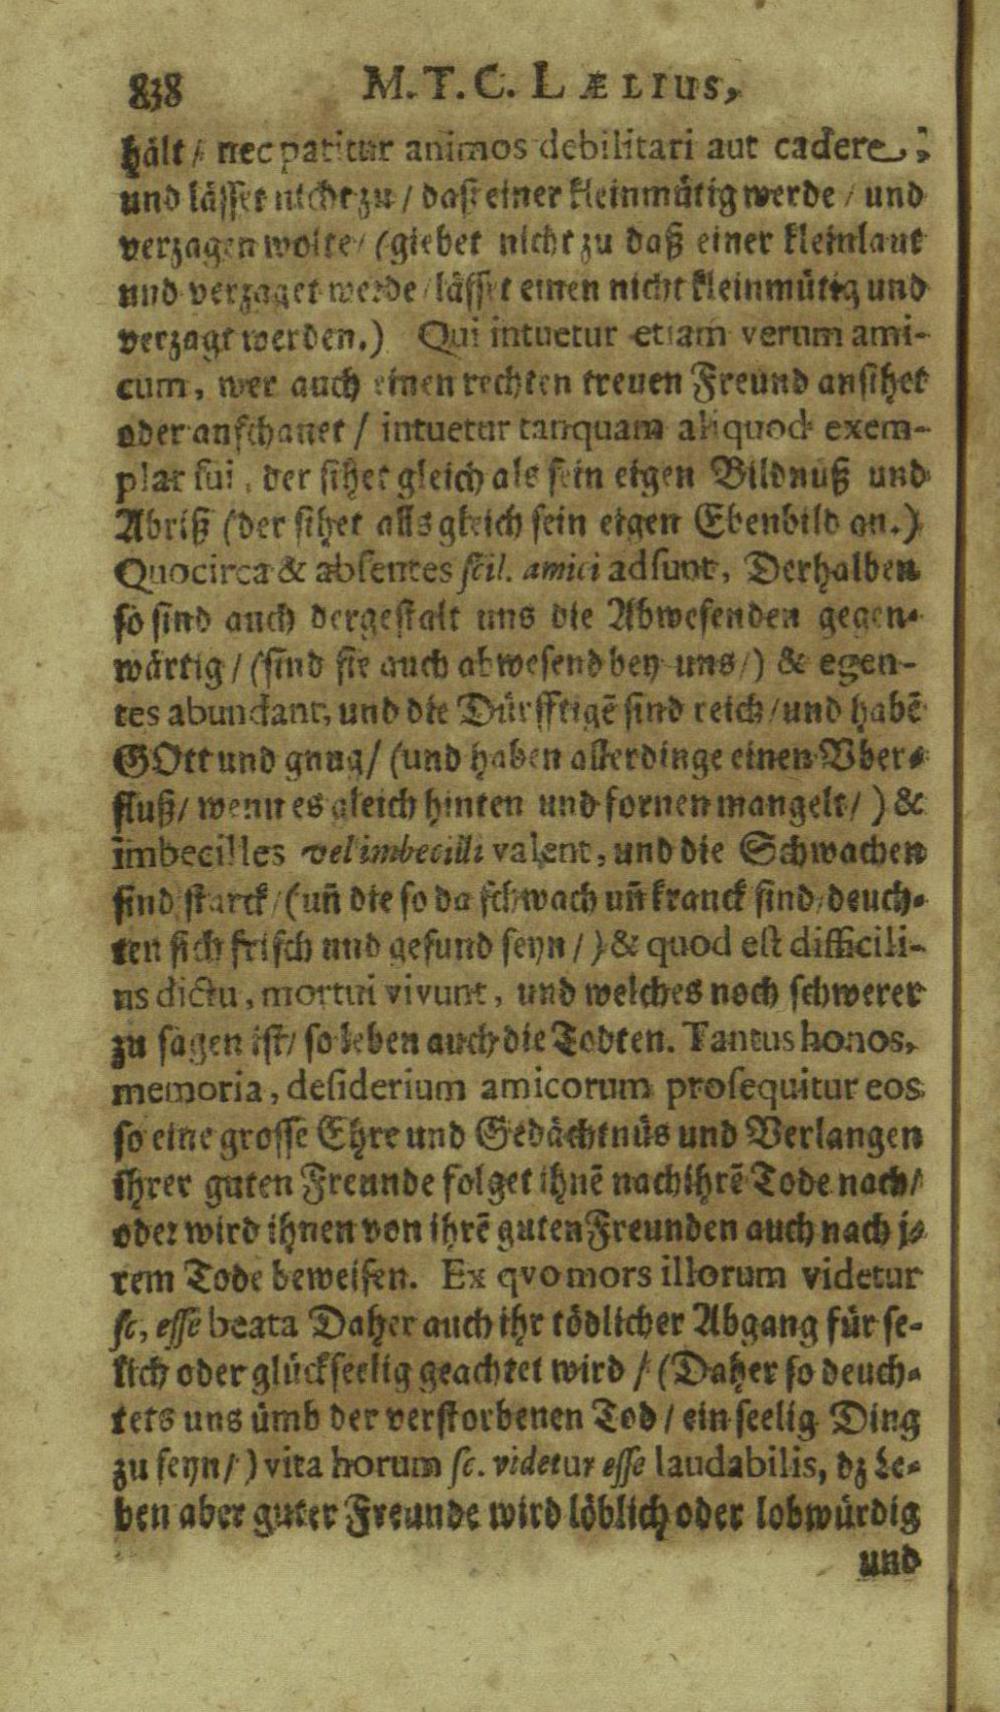 838 M. T. C. LÆLIUS,
hält / nec patitur animos debilitari aut cadere;
und lässet nicht zu / daß einer kleinmütig werde / und
verzagen wolte / (giebet nicht zu daß einer kleinlaut
und verzaget werde / lässet einen nicht kleinmütig und
verzagt werden.) Qui intuetur etiam verum ami-
cum, wer auch einen rechten treuen Freund ansihet
oder anschauet / intuetur tanquam aliquod exem-
plar sui, der sihet gleich als sein eigen Bildnuß und
Abriß (der sihet alls gleich sein eigen Ebenbild an.)
Quocirca & absentes scil. amici adsunt, Derhalben
so sind auch dergestalt uns die Abwesenden gegen-
wärtig / (sind sie auch abwesend bey uns /) & egen-
tes abundant, und die Dürfftigē sind reich / und habē
GOtt und gnug / (und haben allerdinge einen Vber-
fluß / wenn es gleich hinten und fornen mangelt /) &
imbecilles vel imbecilli valent, und die Schwachen
sind starck / (uñ die so da schwach uñ kranck sind, deuch-
ten sich frisch und gesund seyn /) & quod est difficili-
us dictu, mortui vivunt, und welches noch schwerer
zu sagen ist / so leben auch die Todten. Tantus honos,
memoria, desiderium amicorum prosequitur eos
so eine grosse Ehre und Gedächtnüs und Verlangen
ihrer guten Freunde folget ihnē nach ihrē Tode nach /
oder wird ihnen von ihrē guten Freunden auch nach i-
rem Tode beweisen. Ex qvo mors illorum videtur
sc, esse beata Daher auch ihr tödlicher Abgang für se-
lich oder glückseelig geachtet wird / (Daher so deuch-
tets uns ümb der verstorbenen Tod / ein seelig Ding
zu seyn /) vita horum sc. videtur esse laudabilis, dz Le-
ben aber guter Freunde wird löblich oder lobwürdig
und